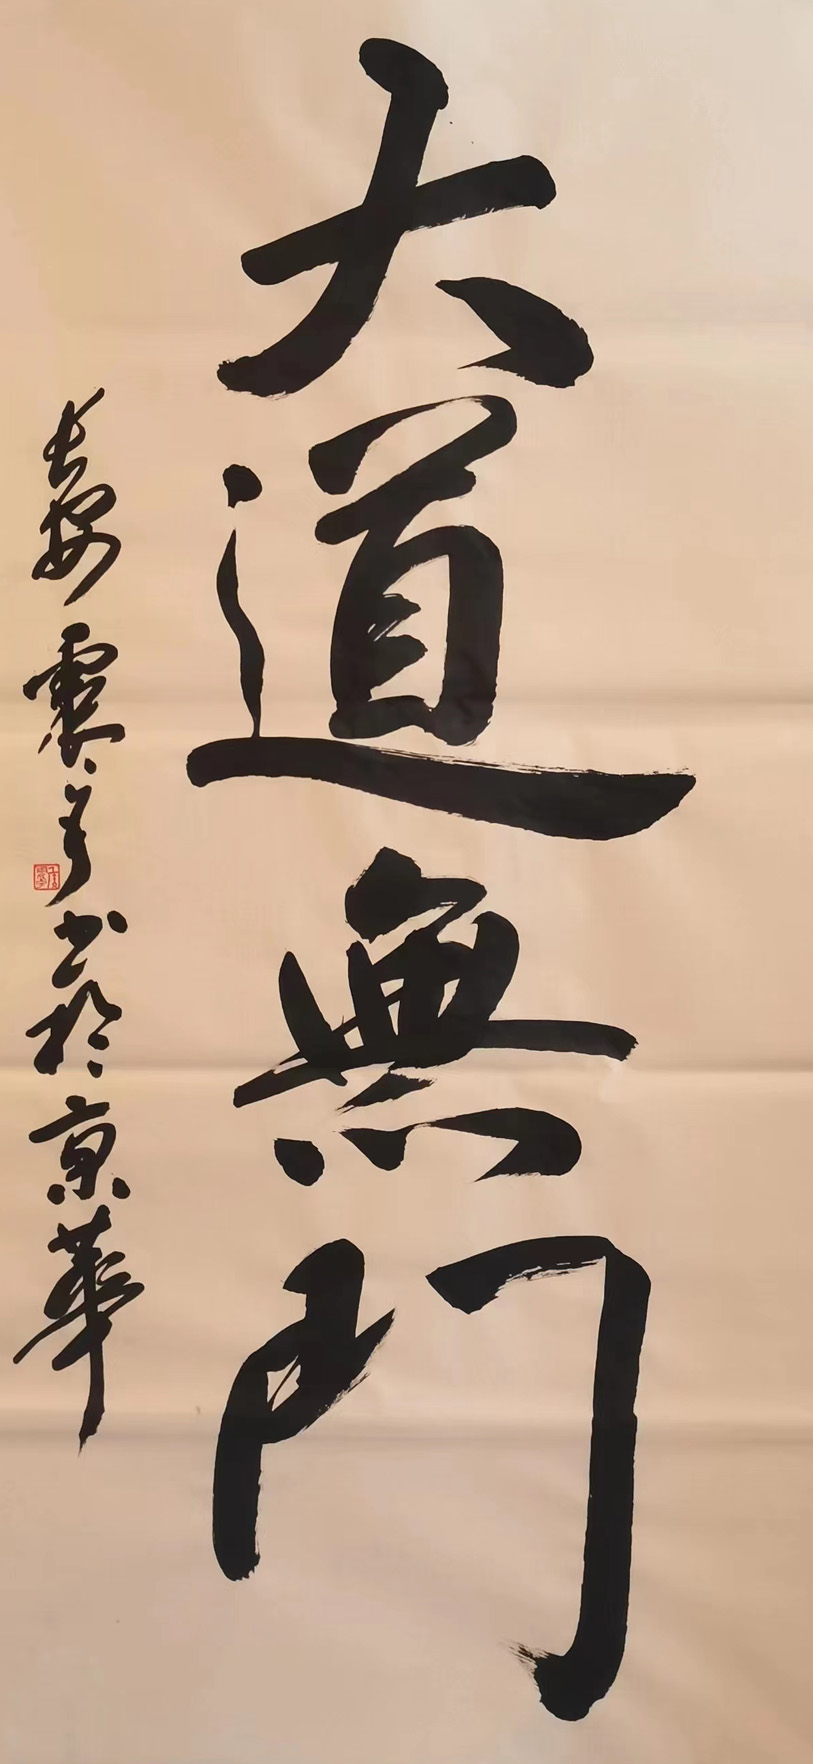 大道無門
長安震言书於京華